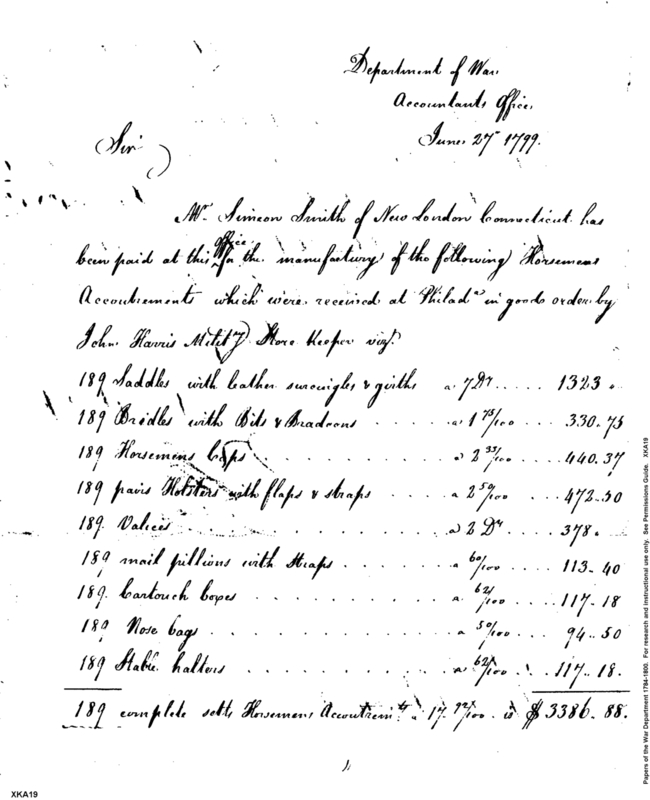 Department of War
Accountants Office
June 27th 1799.
Sir
Mr. Simeon Smith of New London Connecticut has
been paid at this office for the manufactury of the following Horsemens
Accoutrements which were received at Philada in good order by
John Harris Mility Store Keeper vizt.
189 Saddles with leather surcingles & girths a 7 Drs ..... 1323 "
189 Bridles with Bits & Bradoons ...... a 1 75/100 ... 330.75
189 Horsemens Caps ...... a 2 33/100 ... 440.37
189 pairs Holsters with flaps & straps .... a 2 50/100 ... 472.50
189. Valices ...... a 2 Drs .... 378.
189 mail pillions with Straps ..... a 60/100 .... 113.40
189. Cartouch boxes ........ a 62/100 .... 117.18
189 Nose bags ......... a 50/100 .... 94..50
189 Stable halters ........ a 62/100 .... 117..18.
189 complete setts Horsemens Accoutremts a 17.92/100 is $3386.88.
XKA19
Papers of the War Department 1784-1800. For research and instructional use only. See Permissions Guide. XKA19